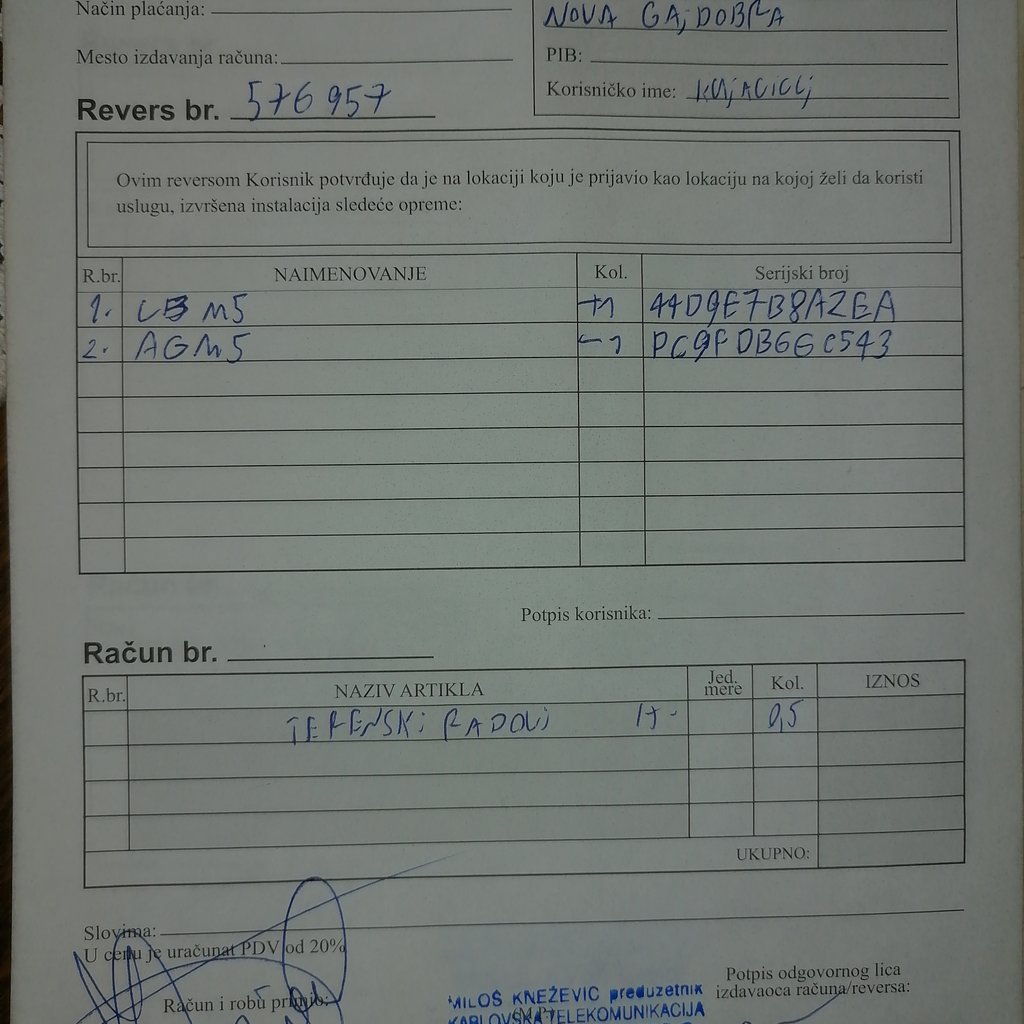 Način plaćanja:
NOVA GAJDOBRA
Mesto izdavanja računa:
PIB:
Korisničko ime:
Revers br. 576957
Ovim reversom Korisnik potvrđuje da je na lokaciji koju je prijavio kao lokaciju na kojoj želi da koristi
uslugu, izvršena instalacija sledeće opreme:
R.br. NAIMENOVANJE Kol. Serijski broj
1. LB M5 +1 44D9E7B8A2EA
2. AG M5 -1
Potpis korisnika:
Račun br.
R.br. NAZIV ARTIKLA Jed. mere Kol. IZNOS
TERENSKI RADOVI 0,5
UKUPNO:
Slovima:
U cenu je uračunat PDV od 20%
Potpis odgovornog lica
Račun i robu primio:
izdavaoca računa/reversa:
MILOŠ KNEŽEVIĆ preduzetnik
(M.P.)
KABLOVSKA TELEKOMUNIKACIJA